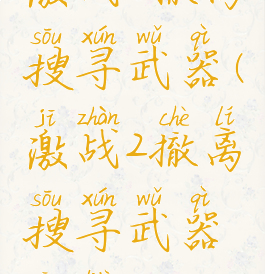 sōu xún wǔ qì
搜寻武器(
jī zhàn chè lí
激战2撤离
sōu xún wǔ qì
搜寻武器